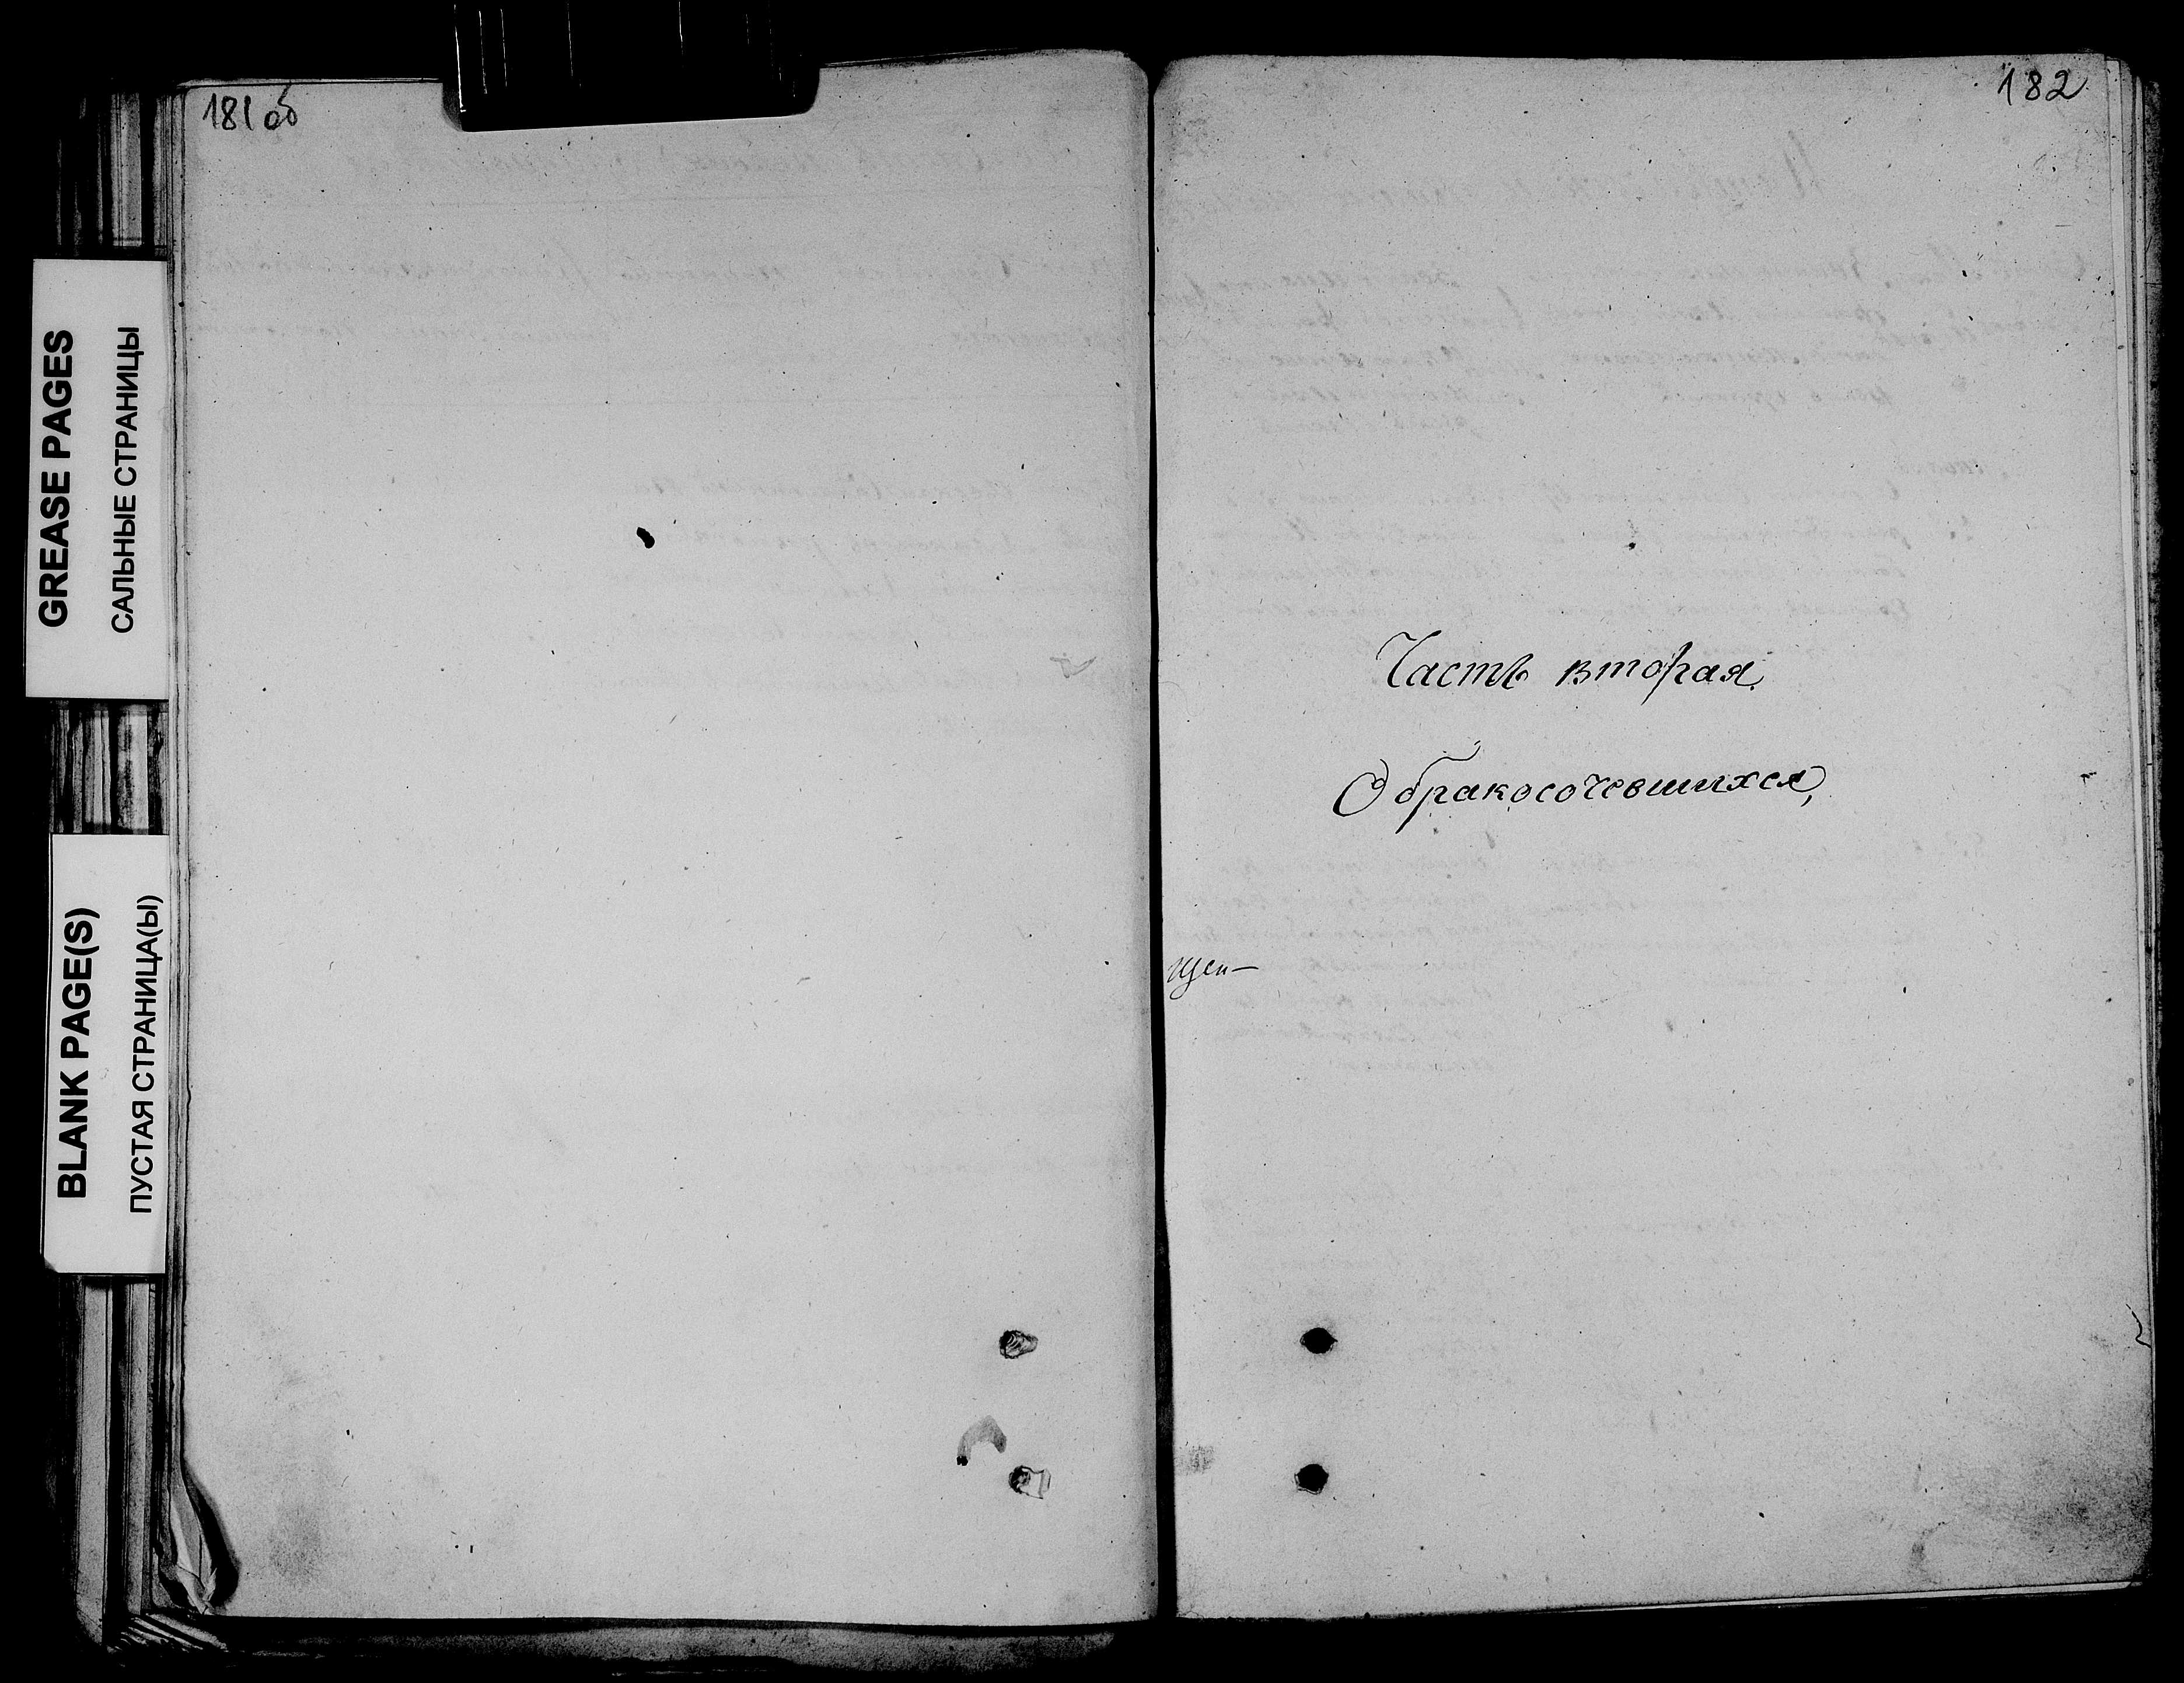 GREASE PAGES
САЛЬНЫЕ СТРАНИЦЫ
BLANK PAGE(S)
ПУСТАЯ СТРАНИЦА(Ы)
181 об
182
Часть вторая
О бракосочевшихся,